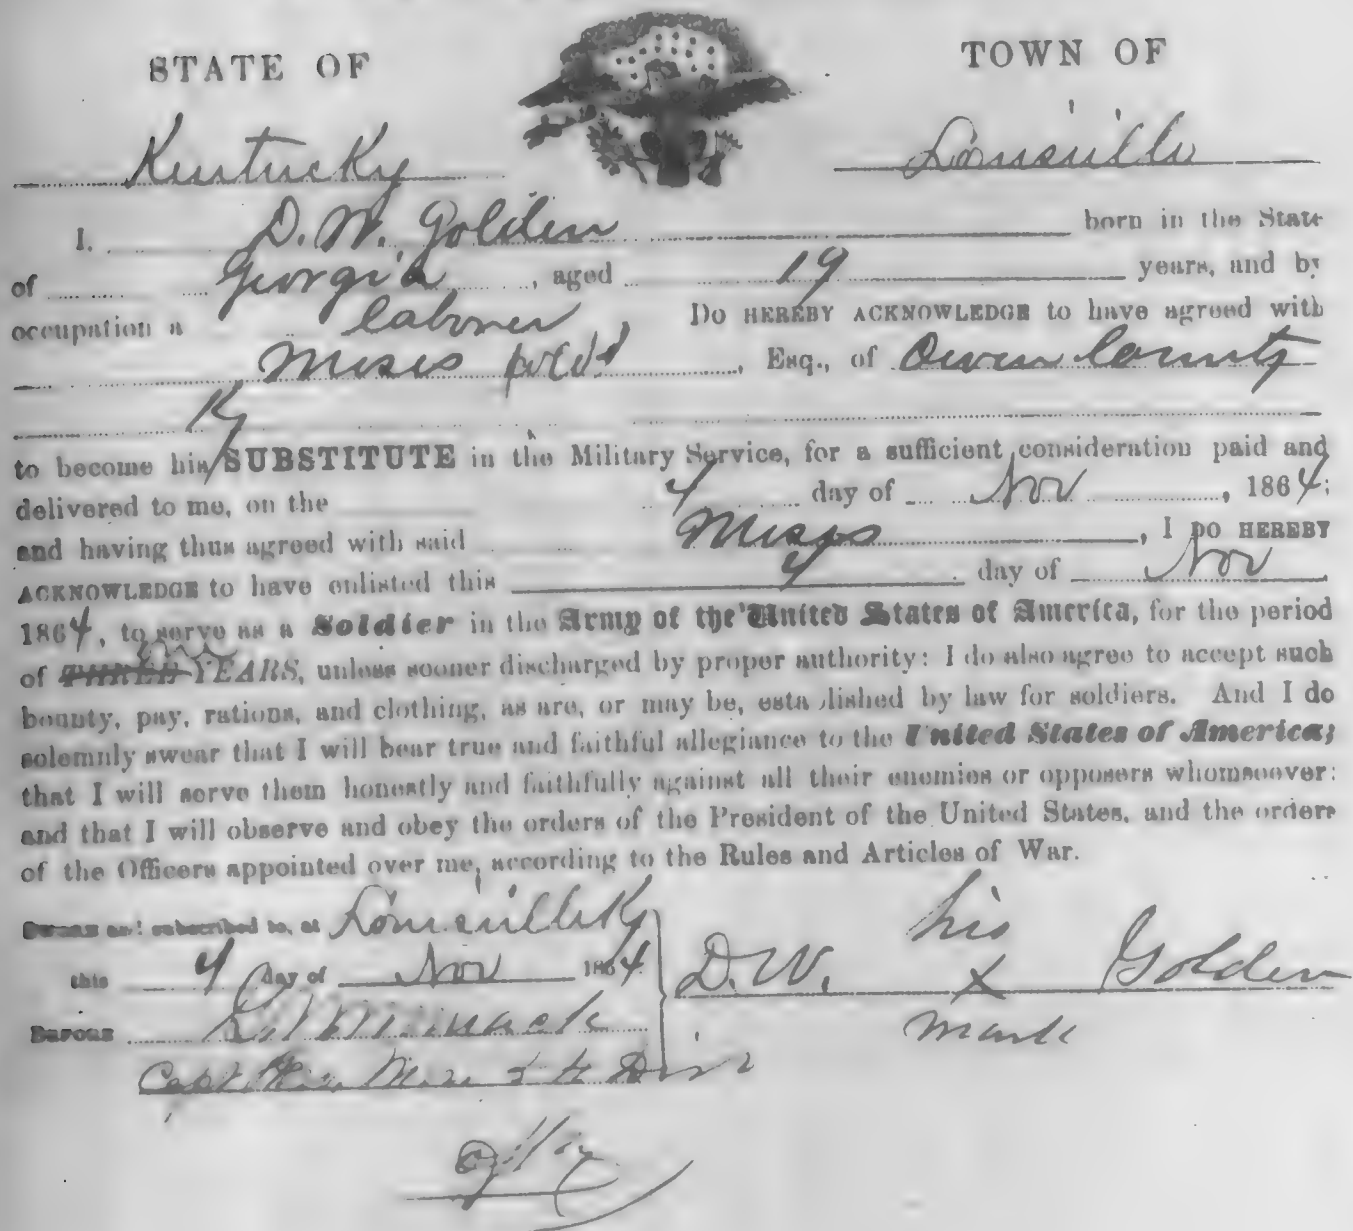 STATE OF
TOWN OF
Kentucky
Louisville
I, D. W. Golden born in the State
of Georgia, aged 19 years, and by
occupation a laborer, Do HEREBY ACKNOWLEDGE to have agreed with
Moses, Esq., of Owen County
Ky
to become his SUBSTITUTE in the Military Service, for a sufficient consideration paid and
delivered to me, on the 4 day of Nov, 1864;
and having thus agreed with said Moses, I DO HEREBY
ACKNOWLEDGE to have enlisted this 4 day of Nov
1864, to serve as a Soldier in the Army of the United States of America, for the period
of THREE YEARS, unless sooner discharged by proper authority: I do also agree to accept such
bounty, pay, rations, and clothing, as are, or may be, established by law for soldiers. And I do
solemnly swear that I will bear true and faithful allegiance to the United States of America;
that I will serve them honestly and faithfully against all their enemies or opposers whomsoever:
and that I will observe and obey the orders of the President of the United States, and the orders
of the Officers appointed over me, according to the Rules and Articles of War.
Sworn and subscribed to, at Louisville Ky
this 4 day of Nov 1864
his
D. W. x Golden
mark
BEFORE
Capt